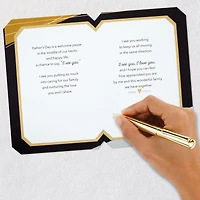 Father's Day is a welcome pause
in the middle of our hectic
and happy life
a chance to say "I see you."
I see you putting so much
into caring for our family
and nurturing the love
you and I share.
I see you working
to keep us all moving
in the same direction.
I see you, I love you,
and I hope you can feel
how appreciated you are
by me and this wonderful family
we have together.